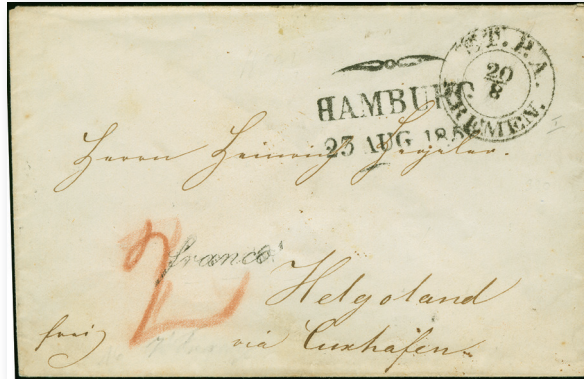 ST. P. A.
20
8
BREMEN.
HAMBURG
23 AUG 185
Herrn Heinrich
2
franco
Helgoland
frei
via Cuxhafen.